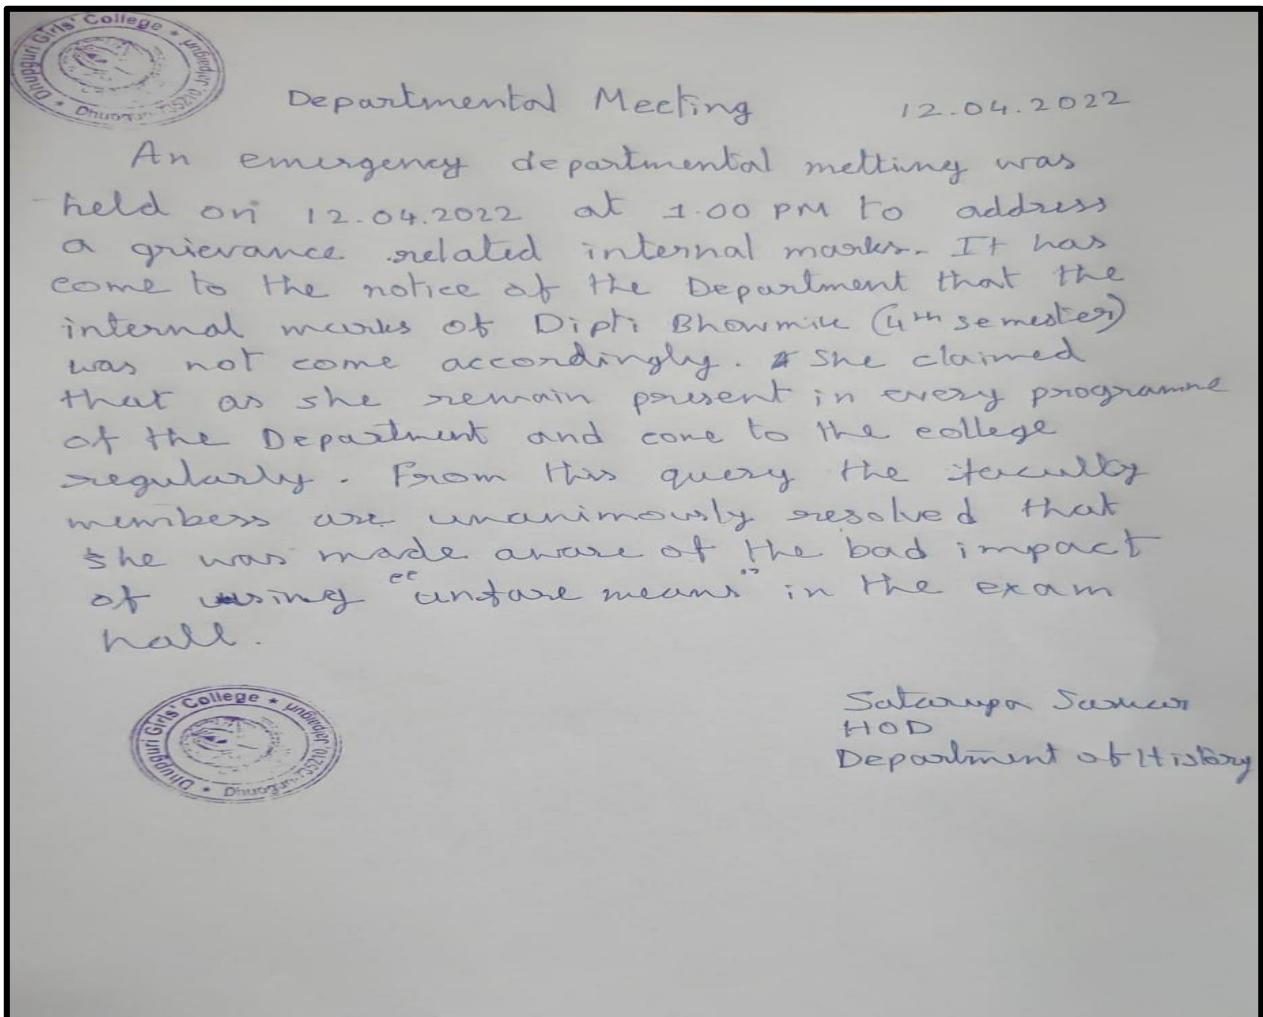 Dhupguri Girls' College * Jalpaiguri
Dhupguri
Departmental Meeting 12.04.2022
An emergency departmental metting was
held on 12.04.2022 at 1.00 PM to address
a grievance related internal marks. It has
come to the notice of the Department that the
internal marks of Dipti Bhowmik (4th semester)
was not come accordingly. She claimed
that as she remain present in every programme
of the Department and come to the college
regularly. From this query the faculty
members are unanimously resolved that
she was made aware of the bad impact
of using "unfare means" in the exam
hall.
Dhupguri Girls' College * Jalpaiguri
Dhupguri
Satarupa Sarkar
HOD
Department of History